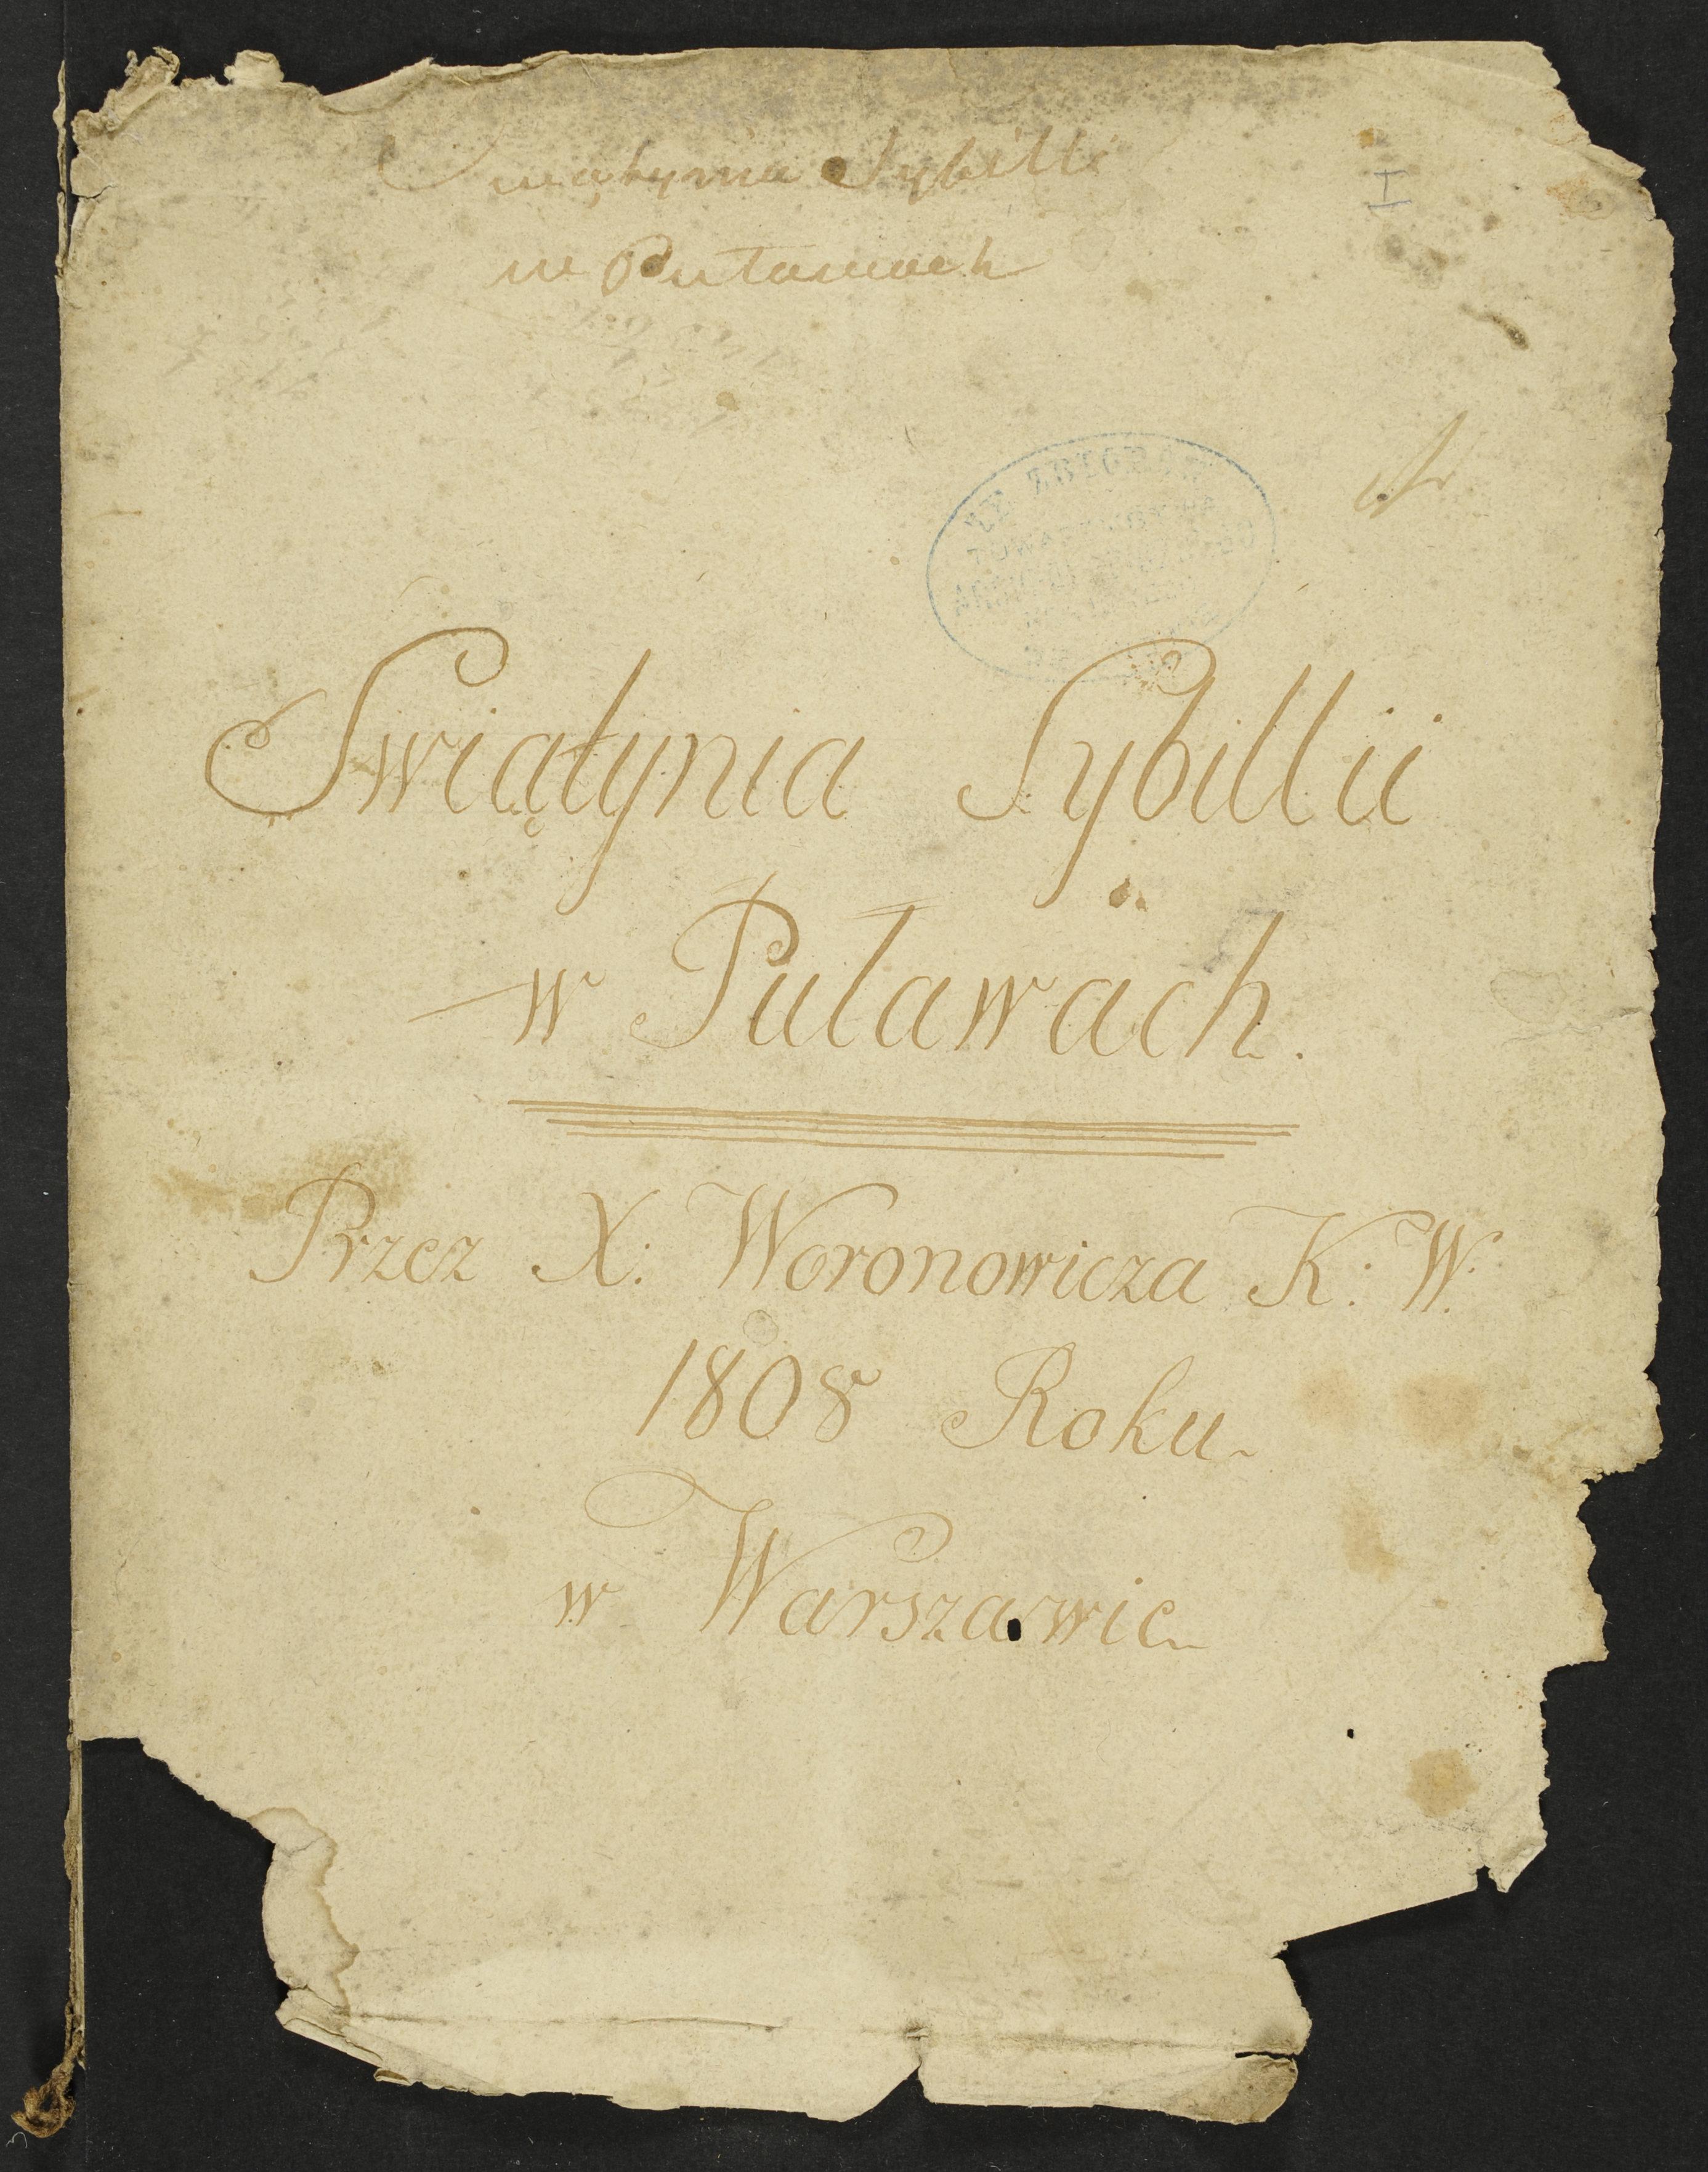 Swiątynia Sybilli
w Puławach
I
ZE ZBIORÓW
TOWARZYSTWA
Swiątynia Sybillii
w Puławach.
Przez X: Woronowicza K: W:
1808 Roku
w Warszawie